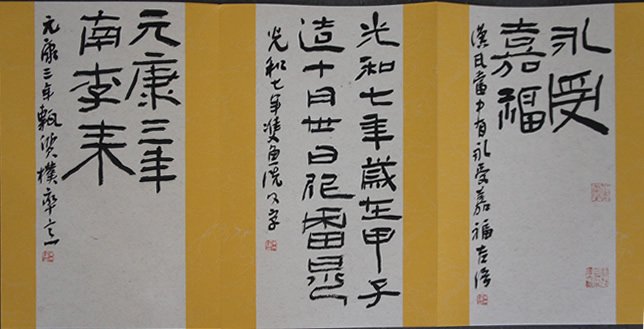 永受
嘉福
漢瓦當中有永受嘉福吉語
光和七年歲在甲子
造十月丗日作
光和七年雙魚洗文字
元康三年
南李來
元康三年甎質樸率意